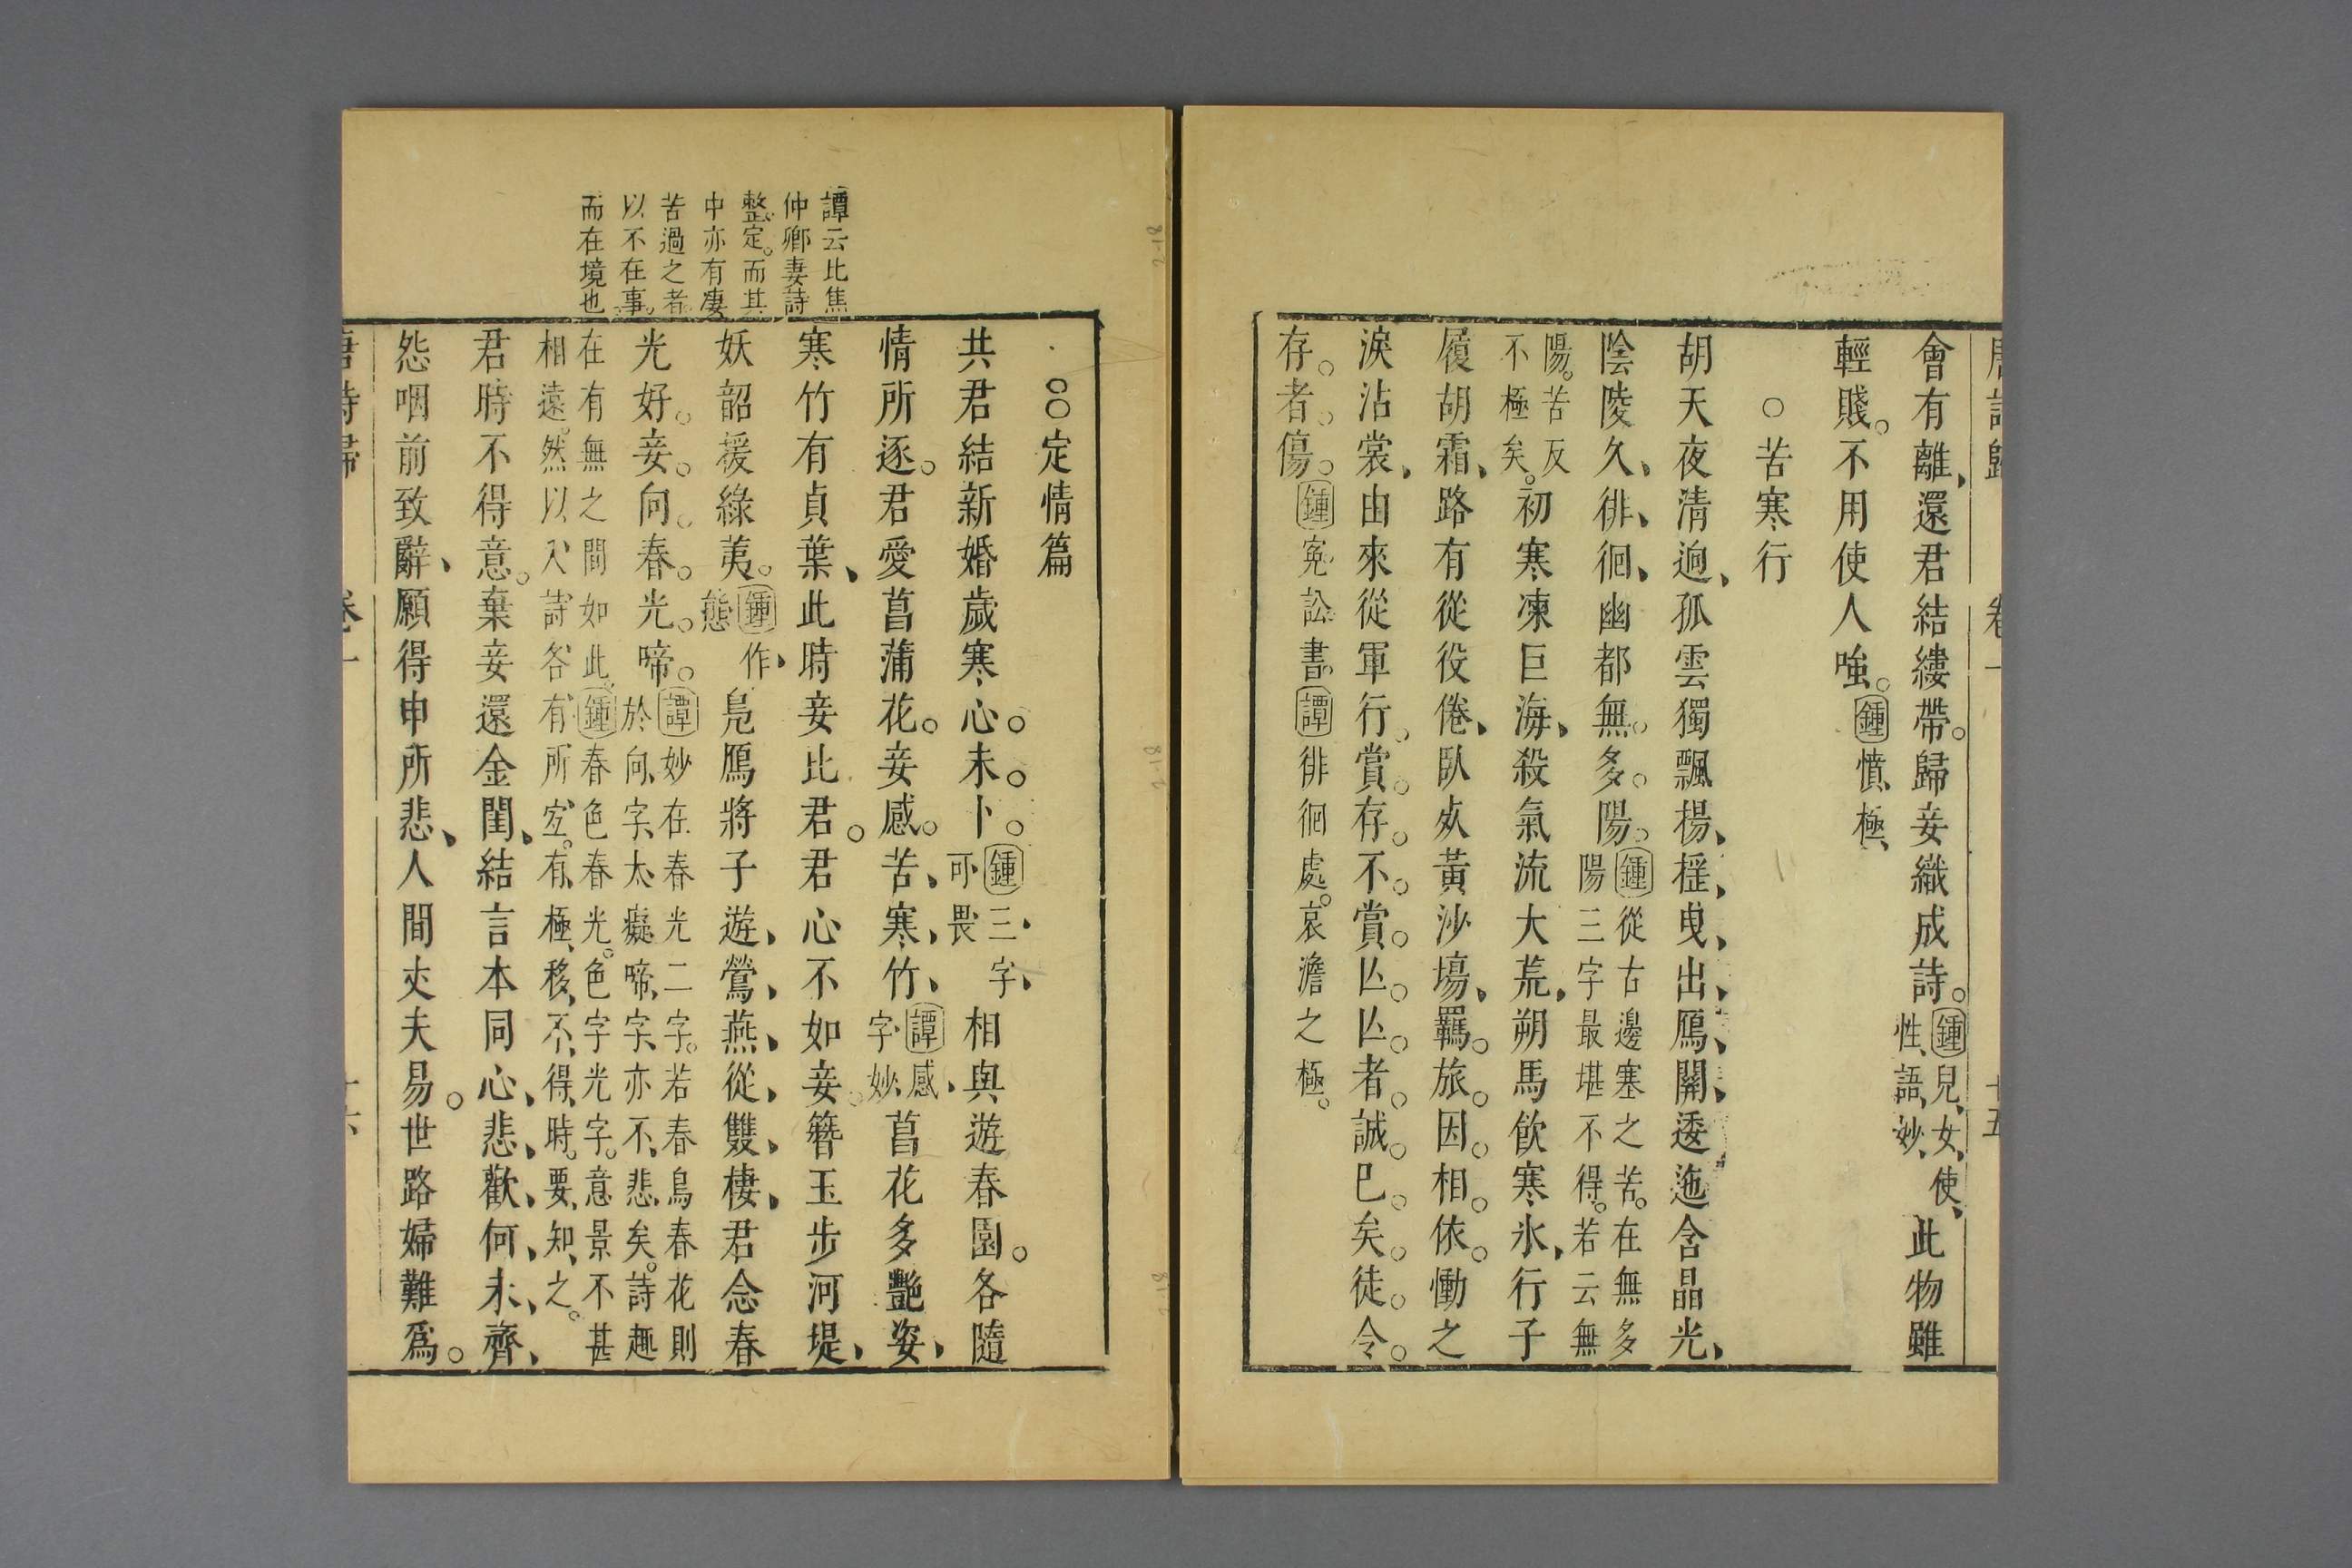 唐詩歸 卷一 十五
會有離還君結縷帶歸妾織成詩鍾兒女使
性語妙此物雖
輕賤不用使人嗤鍾憤極
○苦寒行
胡天夜清迥孤雲獨飄揚摇曳出鴈關逶迤含晶光
陰陵久徘徊幽都無多陽鍾從古邊塞之苦在無多
陽三字最堪不得若云無
陽苦反
不極矣初寒凍巨海殺氣流大荒朔馬飮寒氷行子
履胡霜路有從役倦臥死黃沙塲羇旅因相依慟之
淚沾裳由來從軍行賞存不賞亾亾者誠巳矣徒令
存者傷鍾寃訟書譚徘徊處哀澹之極
○○定情篇
共君結新婚歲寒心未卜鍾三字
可畏相與遊春園各隨
情所逐君愛菖蒲花妾感苦寒竹譚感
字妙菖花多艷姿
寒竹有貞葉此時妾比君君心不如妾簪玉步河堤
妖韶援綠荑鍾作
態鳧鴈將子遊鶯燕從雙棲君念春
光好妾向春光啼譚妙在春光二字若春鳥春花則
於向字太癡啼字亦不悲矣詩趣
在有無之間如此鍾春色春光色字光字意景不甚
相遠然以入詩各有所宜有極移不得時要知之
君時不得意棄妾還金閨結言本同心悲歡何未齊
怨咽前致辭願得申所悲人間丈夫易世路婦難爲
譚云此焦
仲卿妻詩
整定而其
中亦有凄
苦過之者
以不在事
而在境也
唐詩歸 卷一 十六